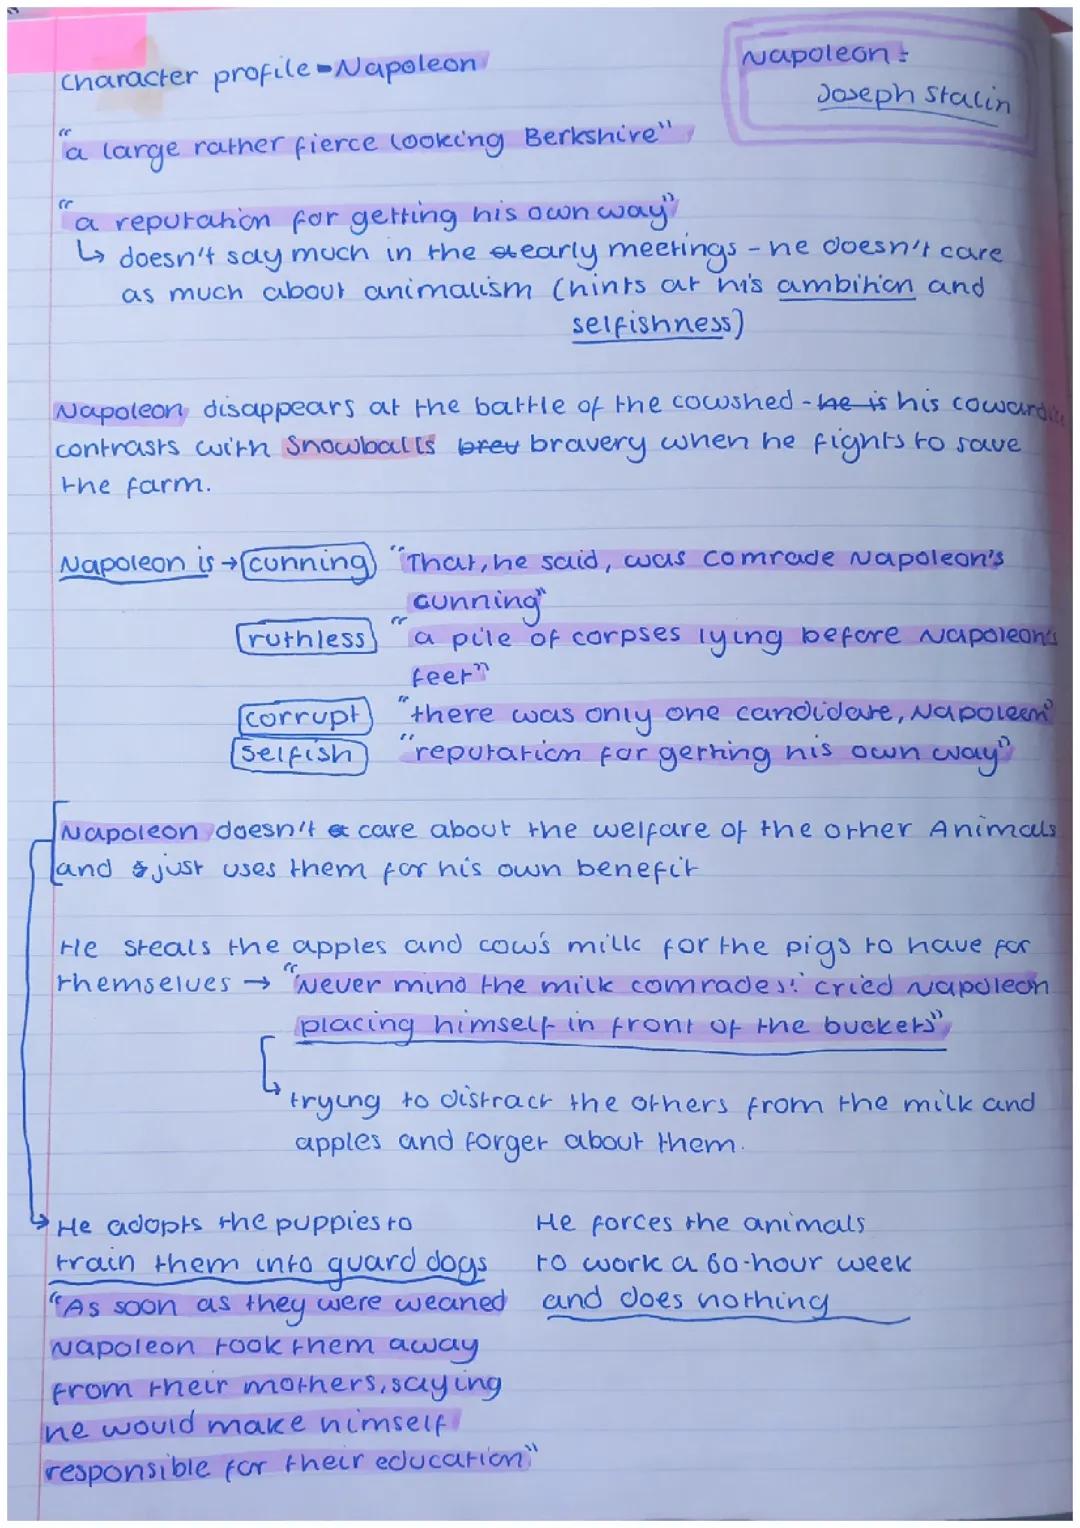 Character profile - Napoleon
Napoleon =
Joseph Stalin
"a large rather fierce looking Berkshire"
"a reputation for getting his own way"
↳ doesn't say much in the early meetings - he doesn't care
as much about animalism (hints at his ambition and
selfishness)
Napoleon disappears at the battle of the cowshed - he is his cowardice
contrasts with Snowballs brev bravery when he fights to save
the farm.
Napoleon is → cunning "That, he said, was comrade Napoleon's
cunning"
ruthless "a pile of corpses lying before Napoleon's
feet"
corrupt "there was only one candidate, Napoleon"
selfish "reputation for getting his own way"
Napoleon doesn't care about the welfare of the other Animals
and just uses them for his own benefit
He steals the apples and cow's milk for the pigs to have for
themselves → "Never mind the milk comrades! cried Napoleon
placing himself in front of the buckets"
↳ trying to distract the others from the milk and
apples and forget about them.
He adopts the puppies to
train them into guard dogs
"As soon as they were weaned
Napoleon took them away
from their mothers, saying
he would make himself
responsible for their education"
He forces the animals
to work a 60-hour week
and does nothing